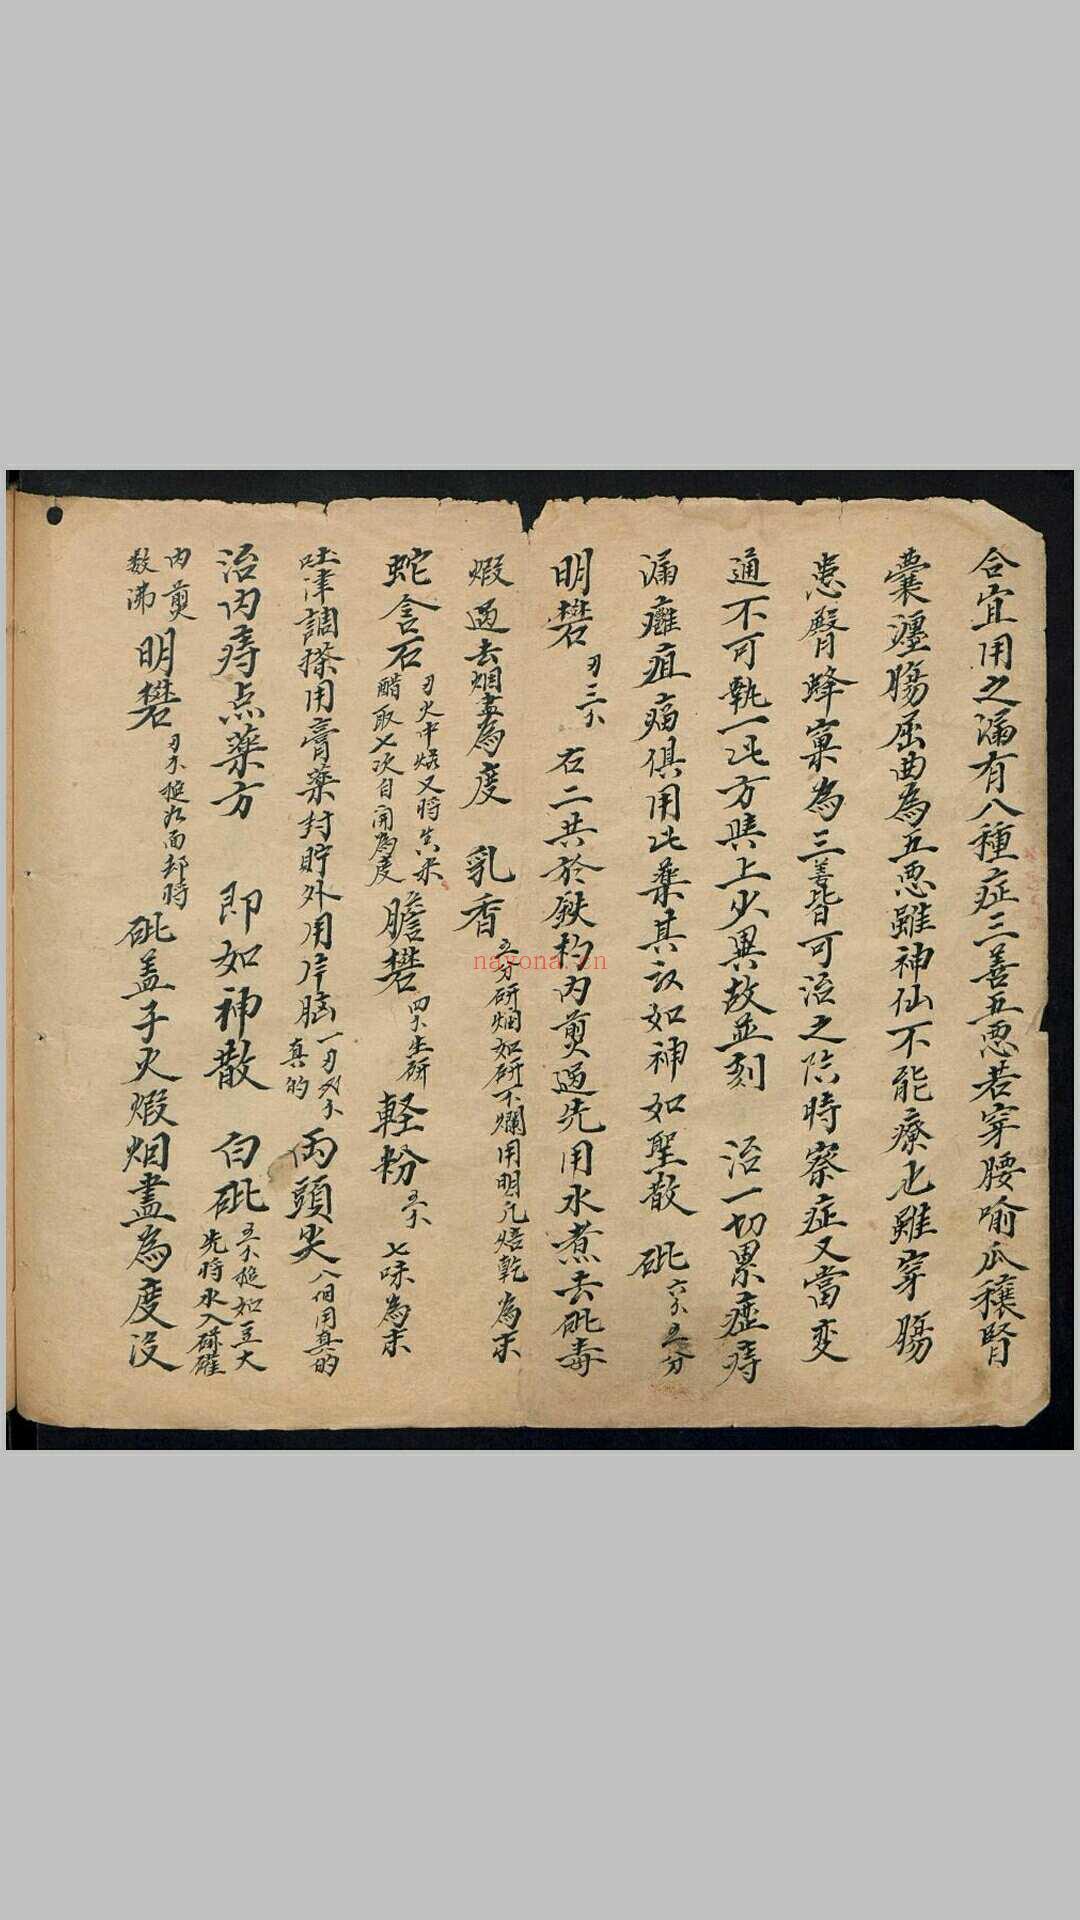 合宜用之漏有八種症三善五恶若穿腰喻瓜穰腎
囊瀍腸屈曲為五恶雖神仙不能療也雖穿腸
患臀蜂窠為三善皆可治之臨時察症又當变
通不可執一此方與上少異故並刻 治一切累症痔
漏癰疽瘍俱用此藥其效如神如聖散 砒六个五分
明礬刃三个 右二共於鉄杓内煎過先用水煮去砒毒
煆過去烟盡為度 乳香五分研烟如研不爛用明凡焙乾為末
蛇含石刃火中煅又將米
醋取七次自開為度 膽礬四个生研 軽粉五个 七味為末
吐津調搽用膏藥封貯外用片脑一刃 真的 両頭尖八個用真的
治内痔点藥方 即如神散 白砒五个搥如豆大
先將水入砵礶
内煎
数沸 明礬 砒盖于火煆烟盡為度没
nayona.cn